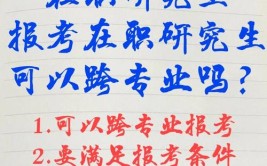 报考在职研究生
可以跨专业吗?
1.可以跨专业报考
2.要满足报考条件